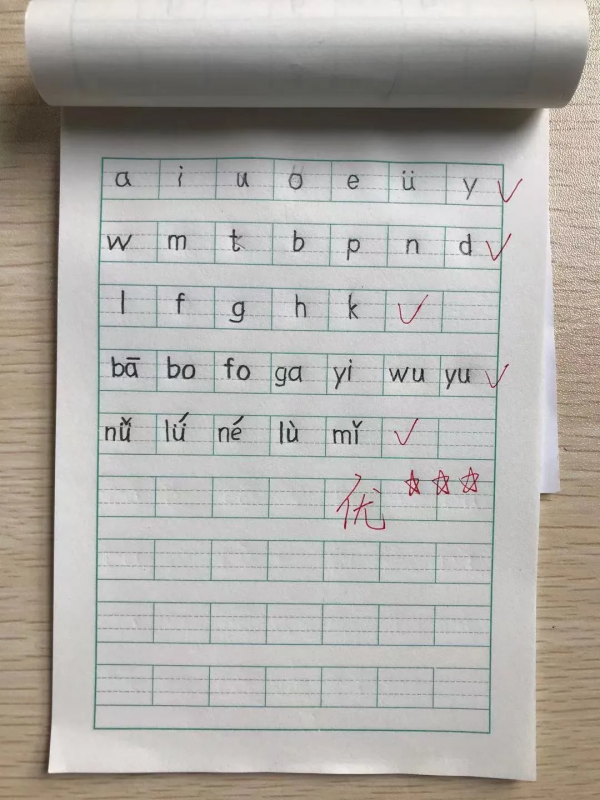 a i u o e ü y
w m t b p n d
l f g h k
bā bo fo ga yi wu yu
nǚ lǘ né lù mǐ
优